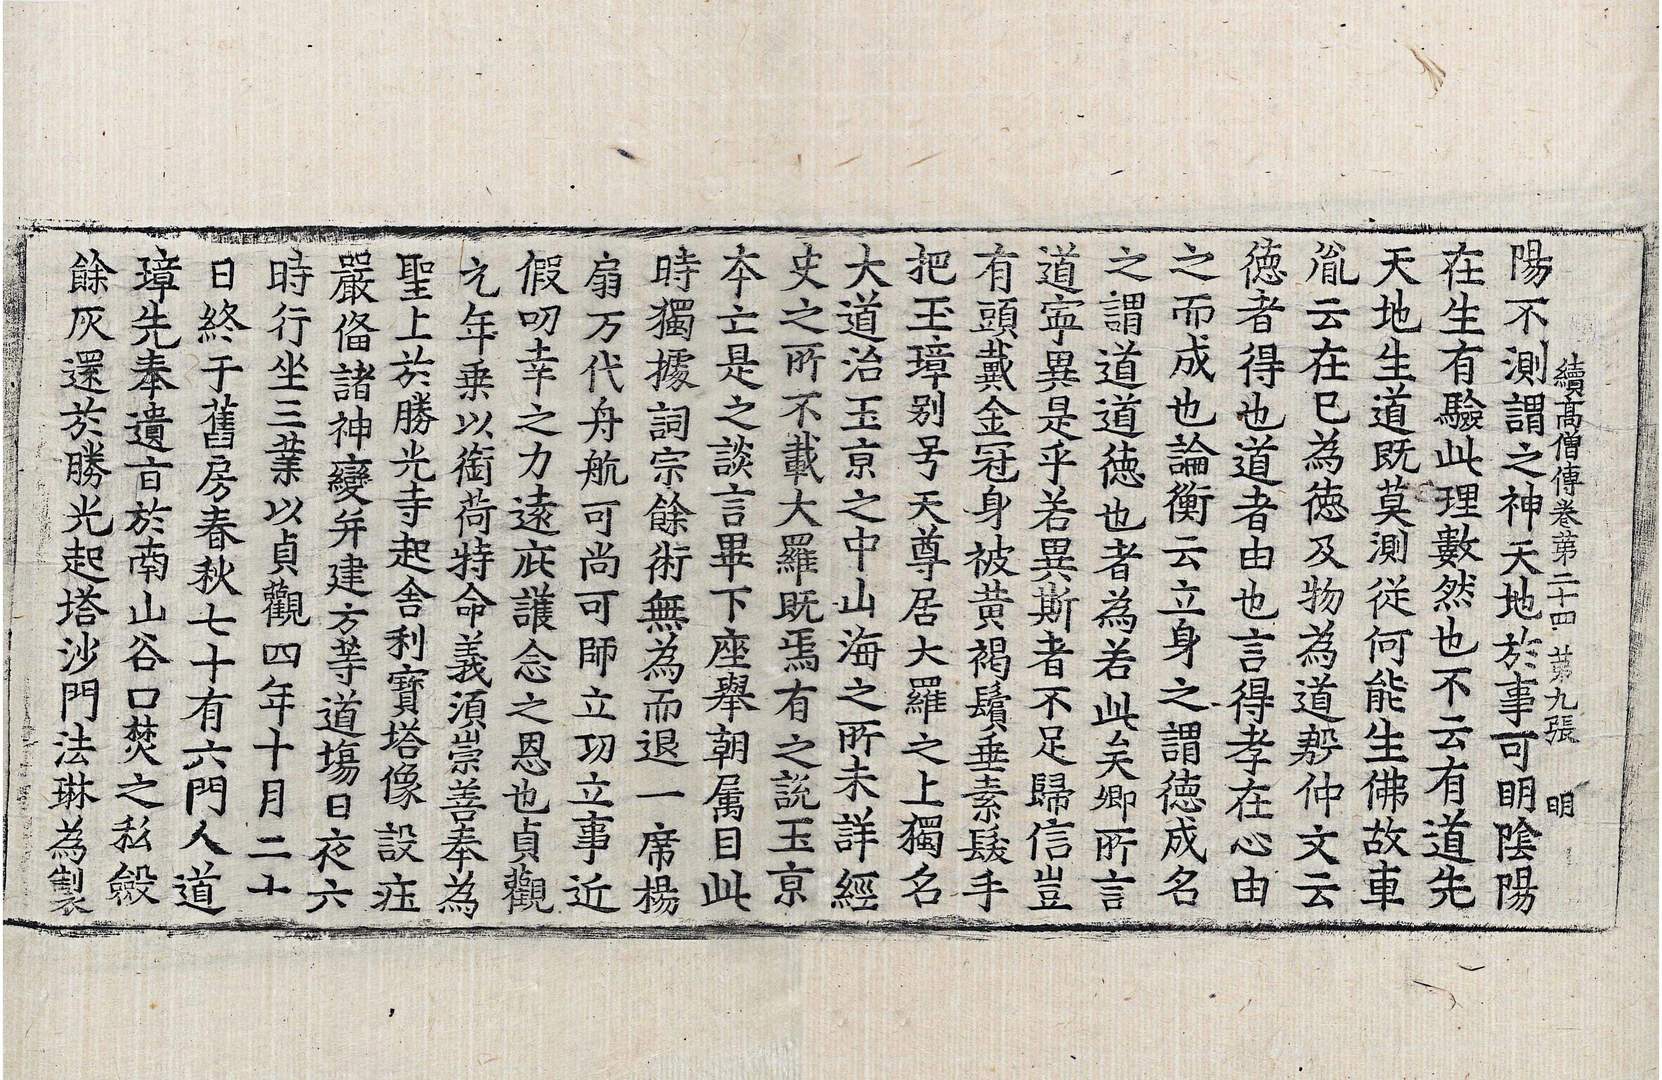 續高僧傳卷第二十四 第九張 明
陽不測謂之神天地於事可明陰陽
在生有驗此理數然也不云有道先
天地生道既莫測從何能生佛故車
胤云在已為德及物為道殷仲文云
德者得也道者由也言得孝在心由
之而成也論衡云立身之謂德成名
之謂道道德也者為若此矣卿所言
道寧異是乎若異斯者不足歸信豈
有頭戴金冠身被黄褐鬢垂素髮手
把玉璋别号天尊居大羅之上獨名
大道治玉京之中山海之所未詳經
史之所不載大羅既焉有之說玉京
本亡是之談言畢下座舉朝属目此
時獨據詞宗餘術無為而退一席楊
扇万代舟航可尚可師立功立事近
假叨幸之力遠庇護念之恩也貞觀
元年乗以銜荷特命義須崇善奉為
聖上於勝光寺起舍利寶塔像設莊
嚴俻諸神變并建方等道塲日夜六
時行坐三業以貞觀四年十月二十
日終于舊房春秋七十有六門人道
璋先奉遺言於南山谷口焚之私斂
餘灰還於勝光起塔沙門法琳為製